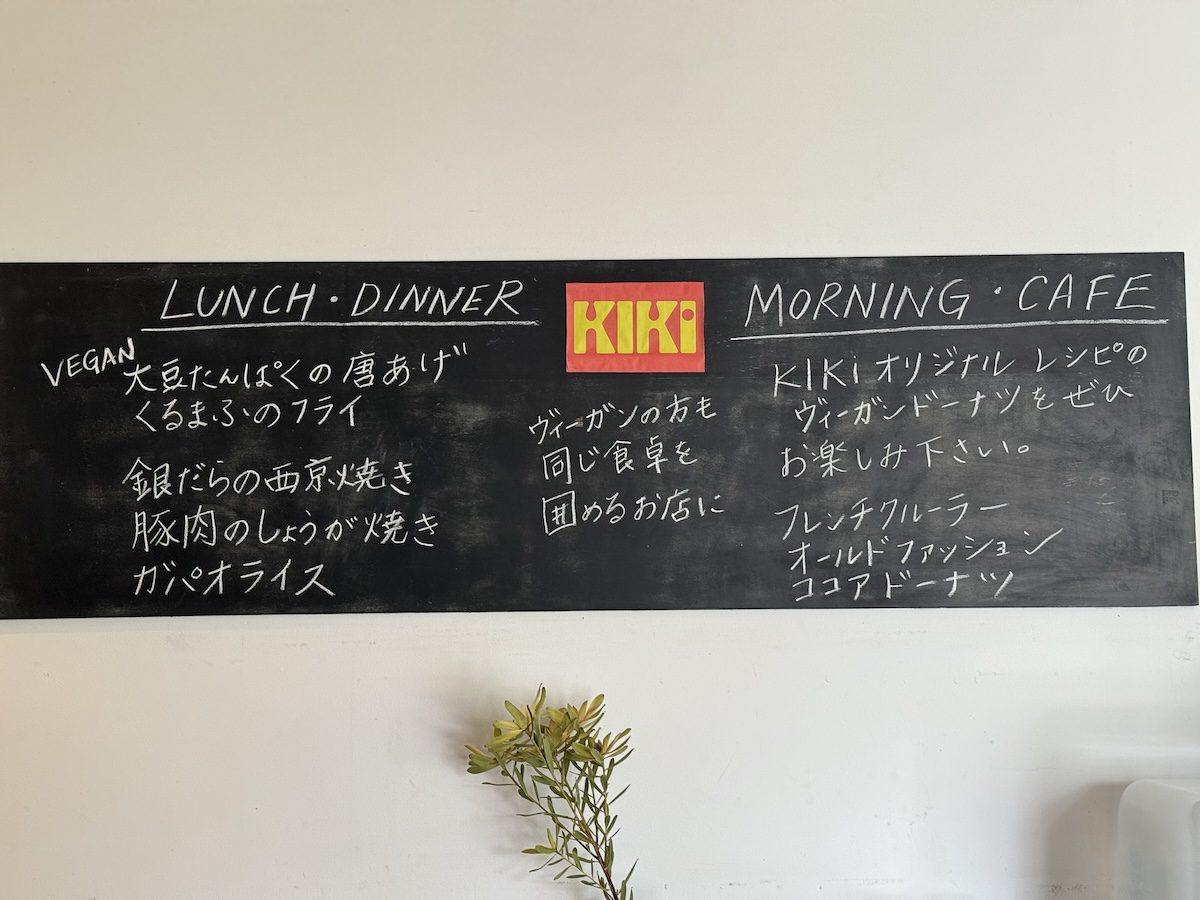 LUNCH・DINNER
VEGAN
大豆たんぱくの唐あげ
くるまふのフライ
銀だらの西京焼き
豚肉のしょうが焼き
ガパオライス
KIKi
ヴィーガンの方も
同じ食卓を
囲めるお店に
MORNING・CAFE
KIKiオリジナル レシピの
ヴィーガンドーナツをぜひ
お楽しみ下さい。
フレンチクルーラー
オールドファッション
ココアドーナツ